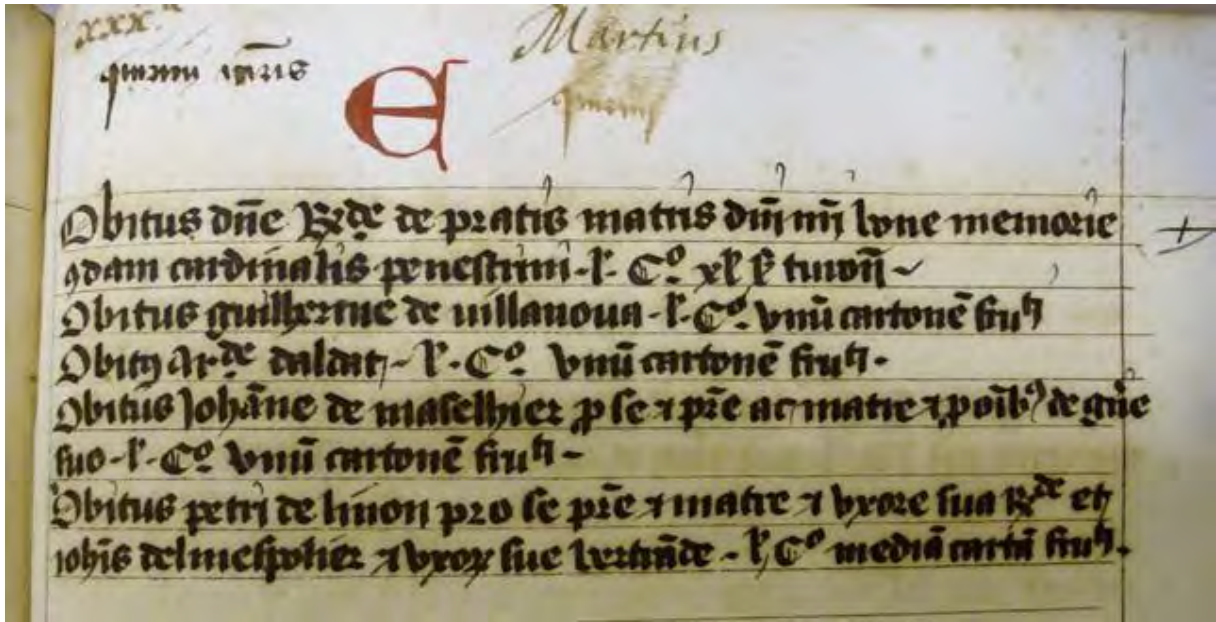 xxx.
Martius
E
Obitus dn̄e Rᵈᵉ de pratis matris dn̄i nr̄i bone memorie
qdam cardinalis penestrini · l · Cº xl ß turoñ
Obitus guilherme de uillanoua · l · Cº · vnū cartonē frut̄i
Obitꝰ Arᵈᵉ daldat · l · Cº vnū cartonē frut̄i ·
Obitus Johāne de maselhier ꝓ se ⁊ pr̄e ac matre ⁊ ꝓ oībꝰ de gn̄e
suo · l · Cº vnū cartonē frut̄i
Obitus petri de limon pro se pr̄e ⁊ matre ⁊ vxore sua Rᵈᵉ et
ioh̄is del mespolier ⁊ vxorꝭ sue bertrān̄de · l · Cº mediā cartā frut̄i ·